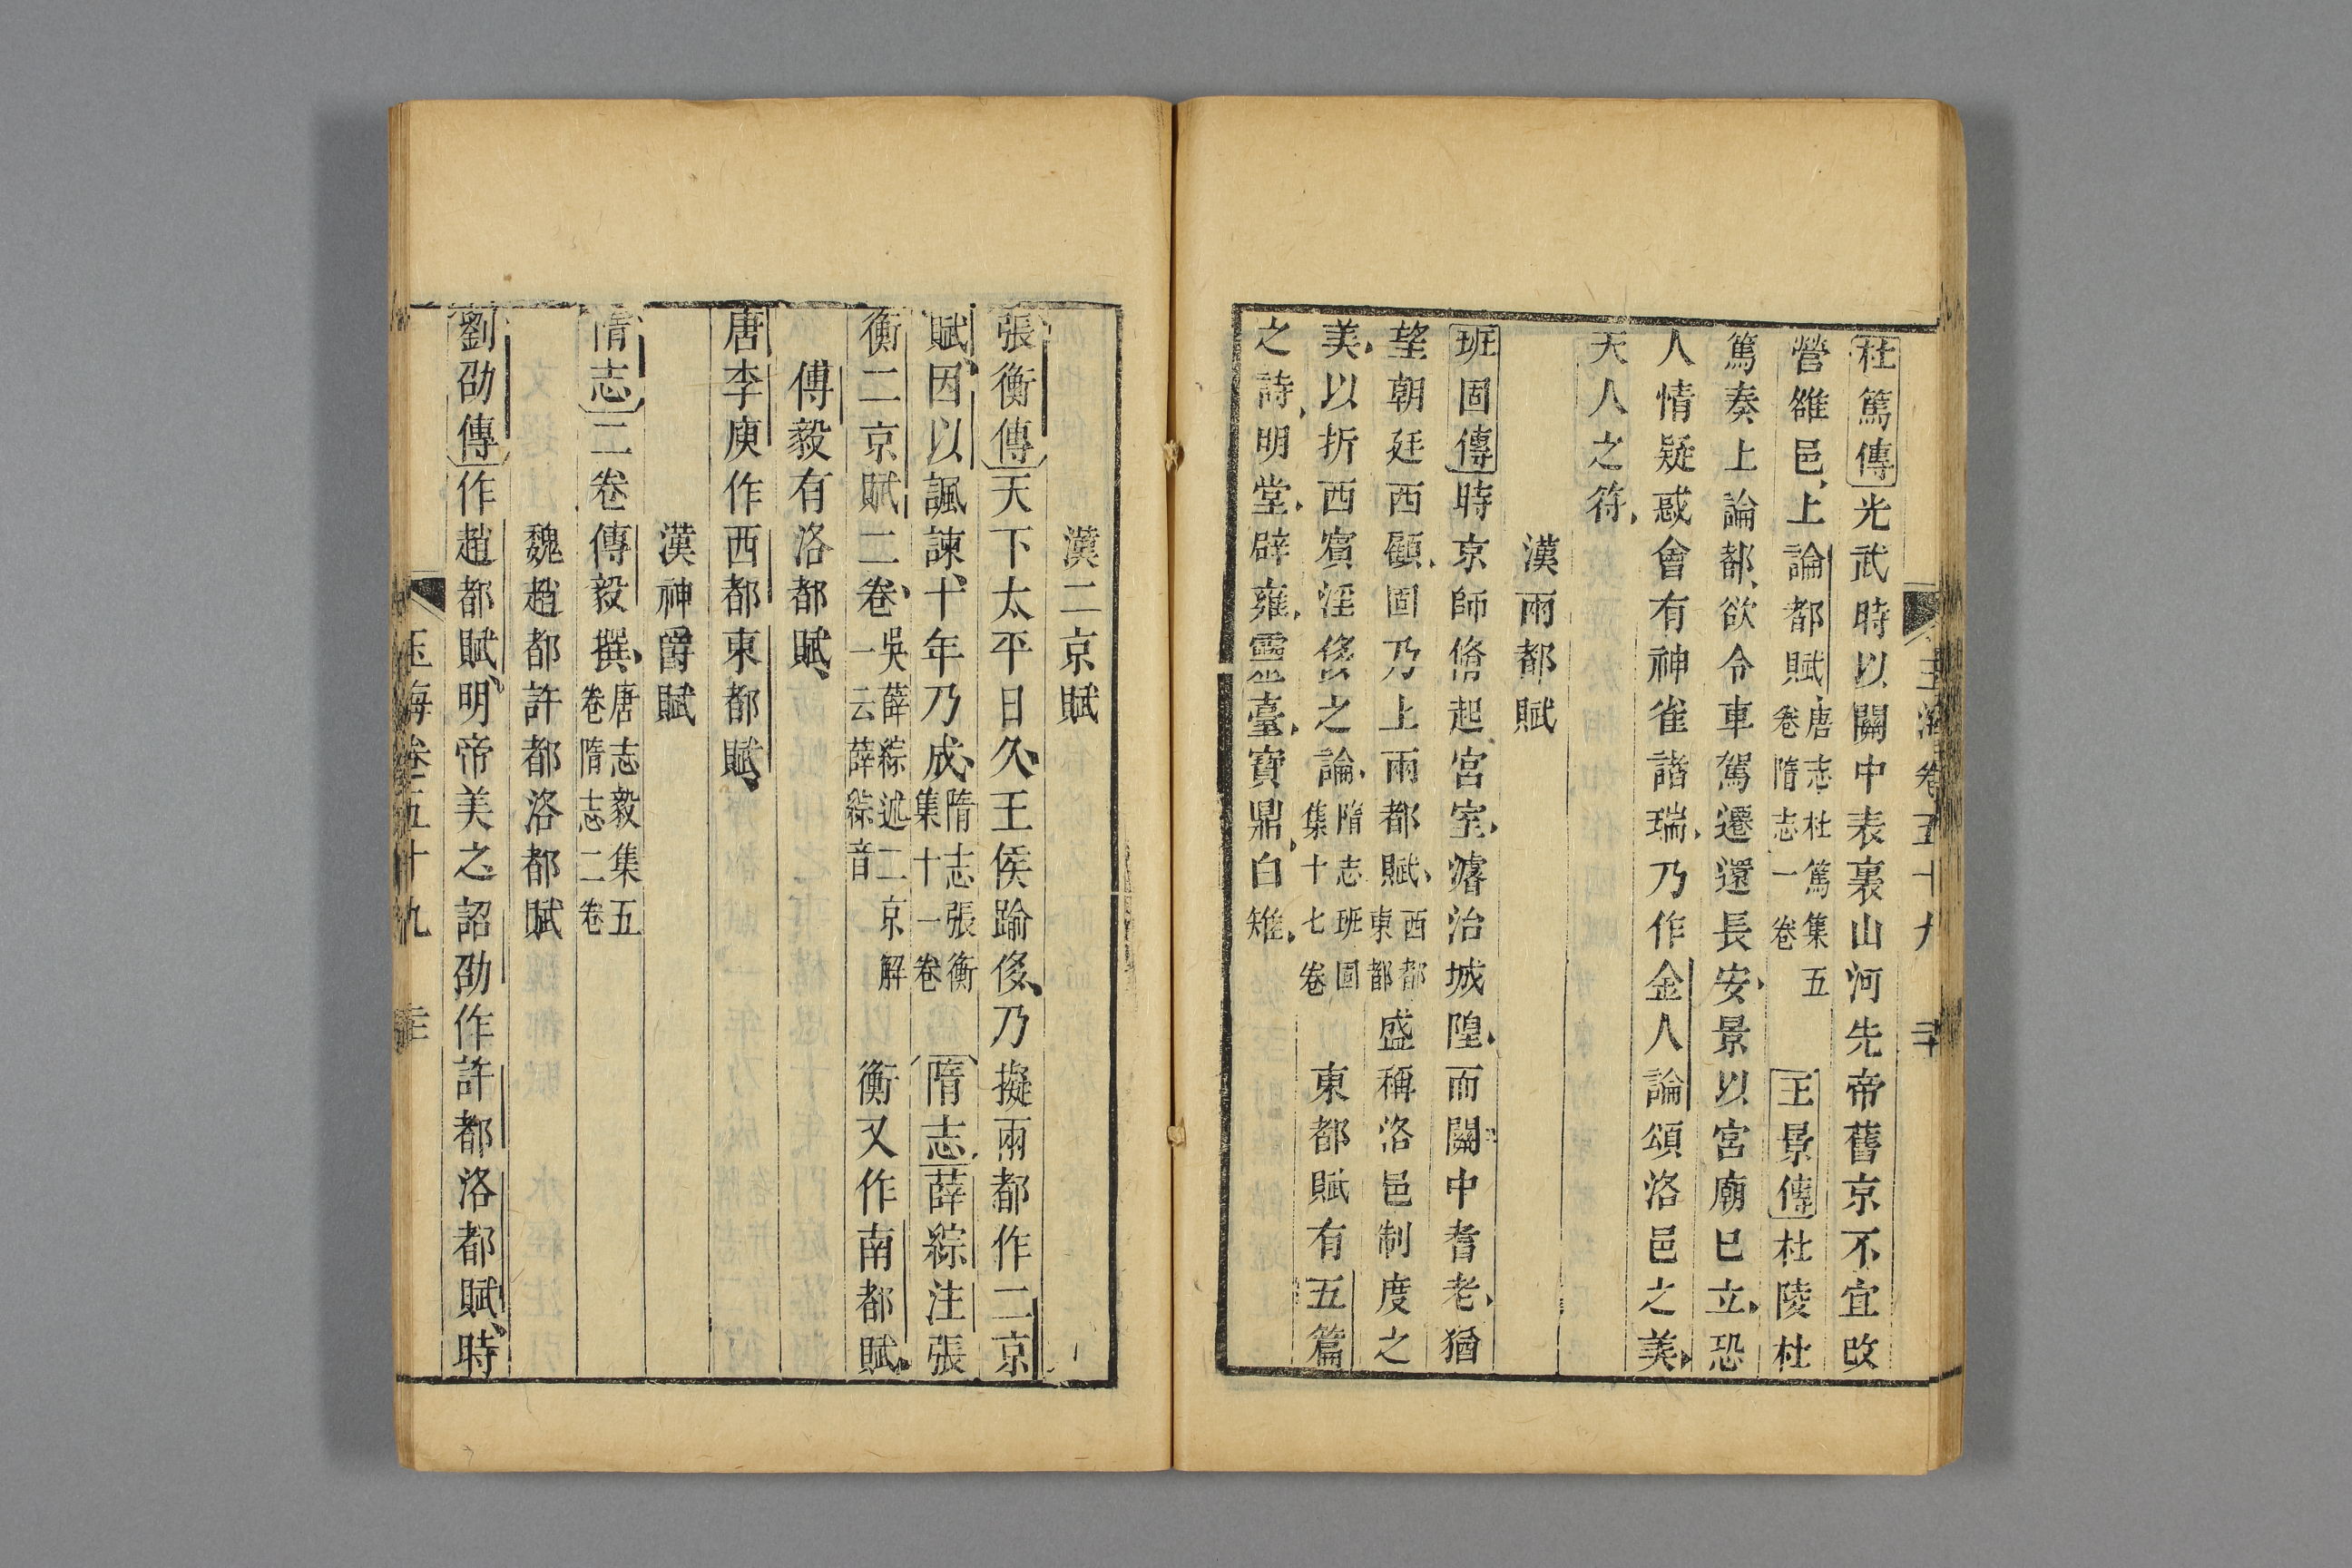 杜篤傳光武時以關中表裏山河先帝舊京不宜改
營雒邑上論都賦唐志杜篤集五卷隋志一卷王景傳杜陵杜
篤奏上論都欲令車駕遷還長安景以宮廟已立恐
人情疑惑會有神雀諸瑞乃作金人論頌洛邑之美
天人之符
漢兩都賦
班固傳時京師脩起宮室濬治城隍而關中耆老猶
望朝廷西顧固乃上兩都賦西都東都盛稱洛邑制度之
美以折西賓淫侈之論隋志班固集十七卷東都賦有五篇
之詩明堂辟雍靈臺寶鼎白雉
漢二京賦
張衡傳天下太平日久王侯踰侈乃擬兩都作二京
賦因以諷諫十年乃成隋志張衡集十一卷隋志薛綜注張
衡二京賦二卷吳薛綜述二京解一云薛綜音衡又作南都賦
傅毅有洛都賦
唐李庾作西都東都賦
漢神爵賦
隋志二卷傅毅撰唐志毅集五卷隋志二卷
魏趙都許都洛都賦
劉劭傳作趙都賦明帝美之詔劭作許都洛都賦時
玉海卷五十九